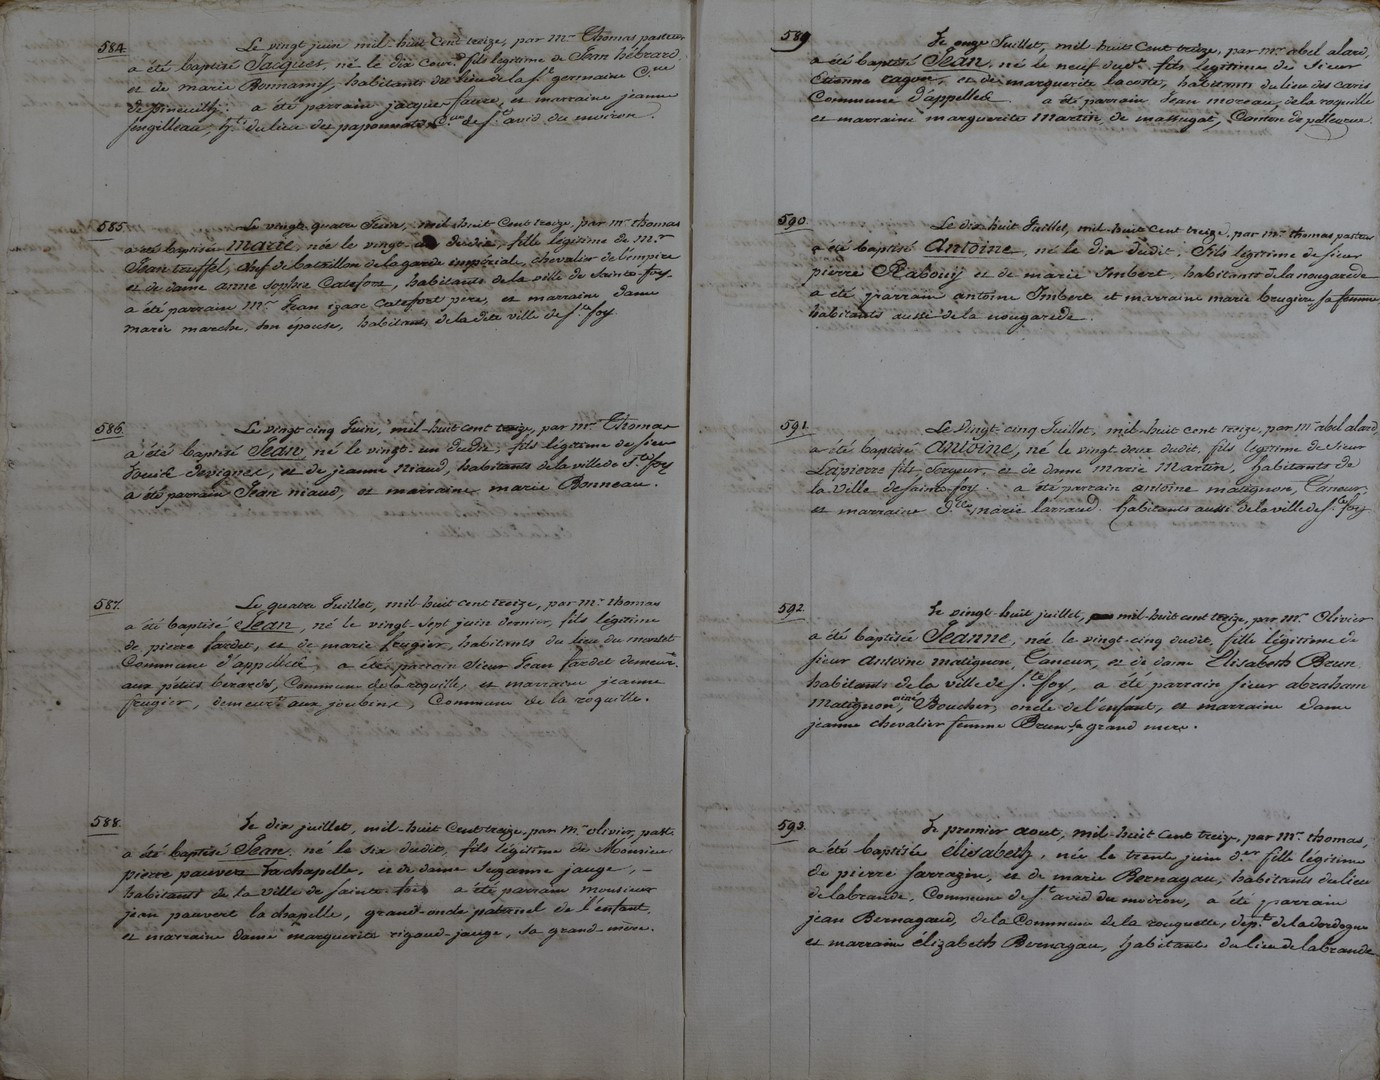 584.
Le vingt juin mil-huit Cent treize, par mr Thomas pasteur
a été baptisé Jacques, né le dix cour.t fils légitime de Jean hébrard
et de marie Bonnamy, habitants du lieu de la ste germaine C.ne
de pineuilh. a été parrain jacques faure, et marraine jeanne
hts du lieu des paponnats C.ne de st avid du moiron.
585.
Le vingt-quatre Juin, mil-huit Cent treize, par mr thomas
a été baptisée Marie, née le vingt dudit, fille légitime de Mr
Jean truffel, chef de bataillon de la garde impériale, chevalier de l'empire
et de dame anne sophie Catefort, habitants de la ville de Sainte-foy
a été parrain Mr Jean izaac Catefort pere, et marraine dame
marie marche, son épouse, habitants de la dite ville de ste foy.
586.
Le vingt-cinq Juin, mil-huit cent treize, par mr Thomas
a été baptisé Jean, né le vingt-un dudit, fils légitime de sieur
et de jeanne niaud, habitants de la ville de Ste foy
a été parrain Jean niaud, et marraine marie Bonneau.
587.
Le quatre Juillet, mil-huit cent treize, par mr thomas
a été baptisé Jean, né le vingt-sept juin dernier, fils légitime
de pierre fardet, et de marie frugier, habitants du lieu du montet
Commune d'appelles, a été parrain Sieur Jean fardet demeur.t
aux petits berards, Commune de la roquille, et marraine jeanne
frugier, demeur.t aux joubins, Commune de la roquille.
588.
Le dix juillet, mil-huit Cent treize, par mr olivier, past.r
a été baptisé Jean né le six dudit, fils légitime de Monsieur
pierre pauvert Lachapelle, et de dame Suzanne jauge,
habitants de la ville de Sainte-foy a été parrain monsieur
jean pauvert la chapelle, grand-oncle paternel de l'enfant,
et marraine dame marguerite rigaud-jauge, sa grand-mère.
589
Le onze Juillet, mil-huit Cent treize, par mr abel alard,
a été baptisé Jean, né le neuf dud.t fils légitime de Sieur
Etienne et de marguerite lacoste, habitants du lieu des caris
Commune d'appelles. a été parrain Jean moreau, de la roquille
et marraine marguerite Martin de massugat, Canton de pellegrue.
590.
Le dix huit Juillet, mil-huit Cent treize, par mr thomas pasteur
a été baptisé Antoine, né le dix dudit, fils légitime de sieur
pierre Rabouy et de marie Imbert, habitants de la nougarède
a été parrain antoine Imbert et marraine marie brugière sa femme
habitants aussi de la nougarède.
591.
Le Vingt-cinq Juillet, mil-huit Cent treize, par mr abel alard,
a été baptisé Antoine, né le vingt deux dudit, fils légitime de Sieur
Lapierre fils et de dame marie Martin, habitants de
la ville de Sainte-foy. a été parrain antoine matignon, Taneur,
et marraine D.lle marie larraud. habitants aussi de la ville de Ste foy
592.
Le vingt-huit juillet, mil-huit cent treize, par mr Olivier
a été baptisée Jeanne, née le vingt-cinq dudit, fille légitime de
sieur Antoine matignon, Taneur, et de dame Elisabeth Brun
habitants de la ville de Ste foy, a été parrain sieur abraham
Matignon, ainé Boucher, oncle de l'enfant, et marraine dame
jeanne chevalier femme Brun, sa grand mère.
593.
Le premier aout, mil-huit Cent treize, par mr thomas,
a été baptisée élisabeth, née le trente juin d.er fille légitime
de pierre sarrazin, et de marie Bernagau, habitants du lieu
de labrande, Commune de st avid du moiron, a été parrain
jean Bernagaud, de la Commune de la rouquette, dep.t de la dordogne
et marraine élizabeth Bernagau, habitante du lieu de labrande.